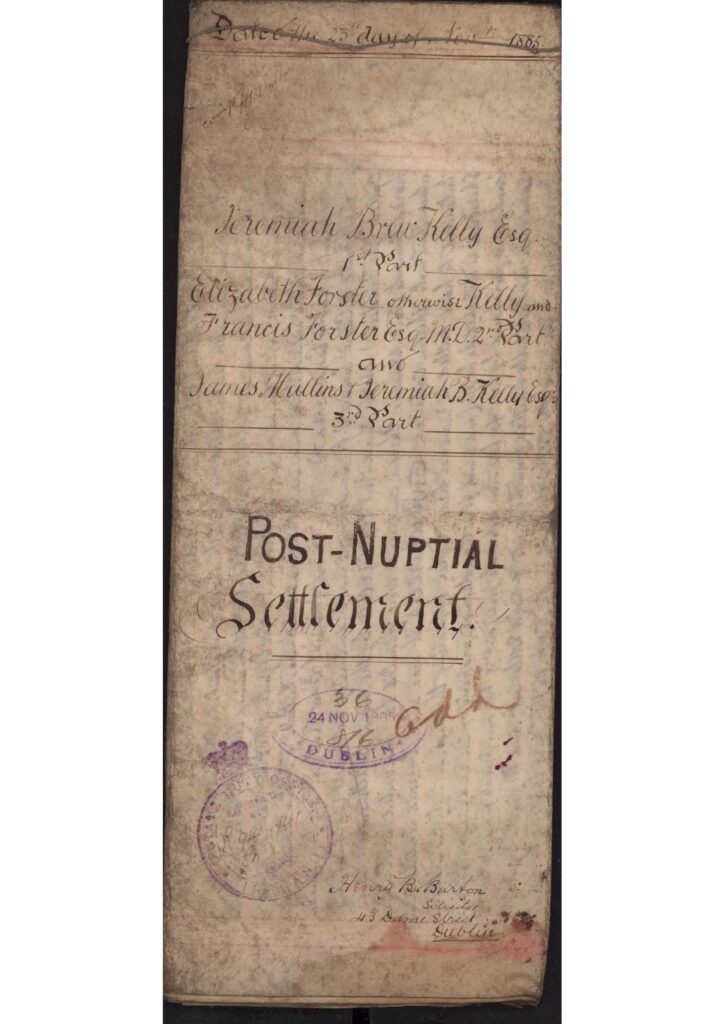 Dated the 23rd day of Novr. 1885.
Jeremiah Brew Kelly Esq.
1st Part
Elizabeth Forster otherwise Kelly and
Francis Forster Esq. M.D. 2nd Part
and
James Mullins & Jeremiah B. Kelly Esqs
3rd Part
POST-NUPTIAL
Settlement.
36
24 NOV
8/6
DUBLIN
add
ESTATE DUTY OFFICE
Henry B. Burton
Solicitor
43 Dame Street
Dublin